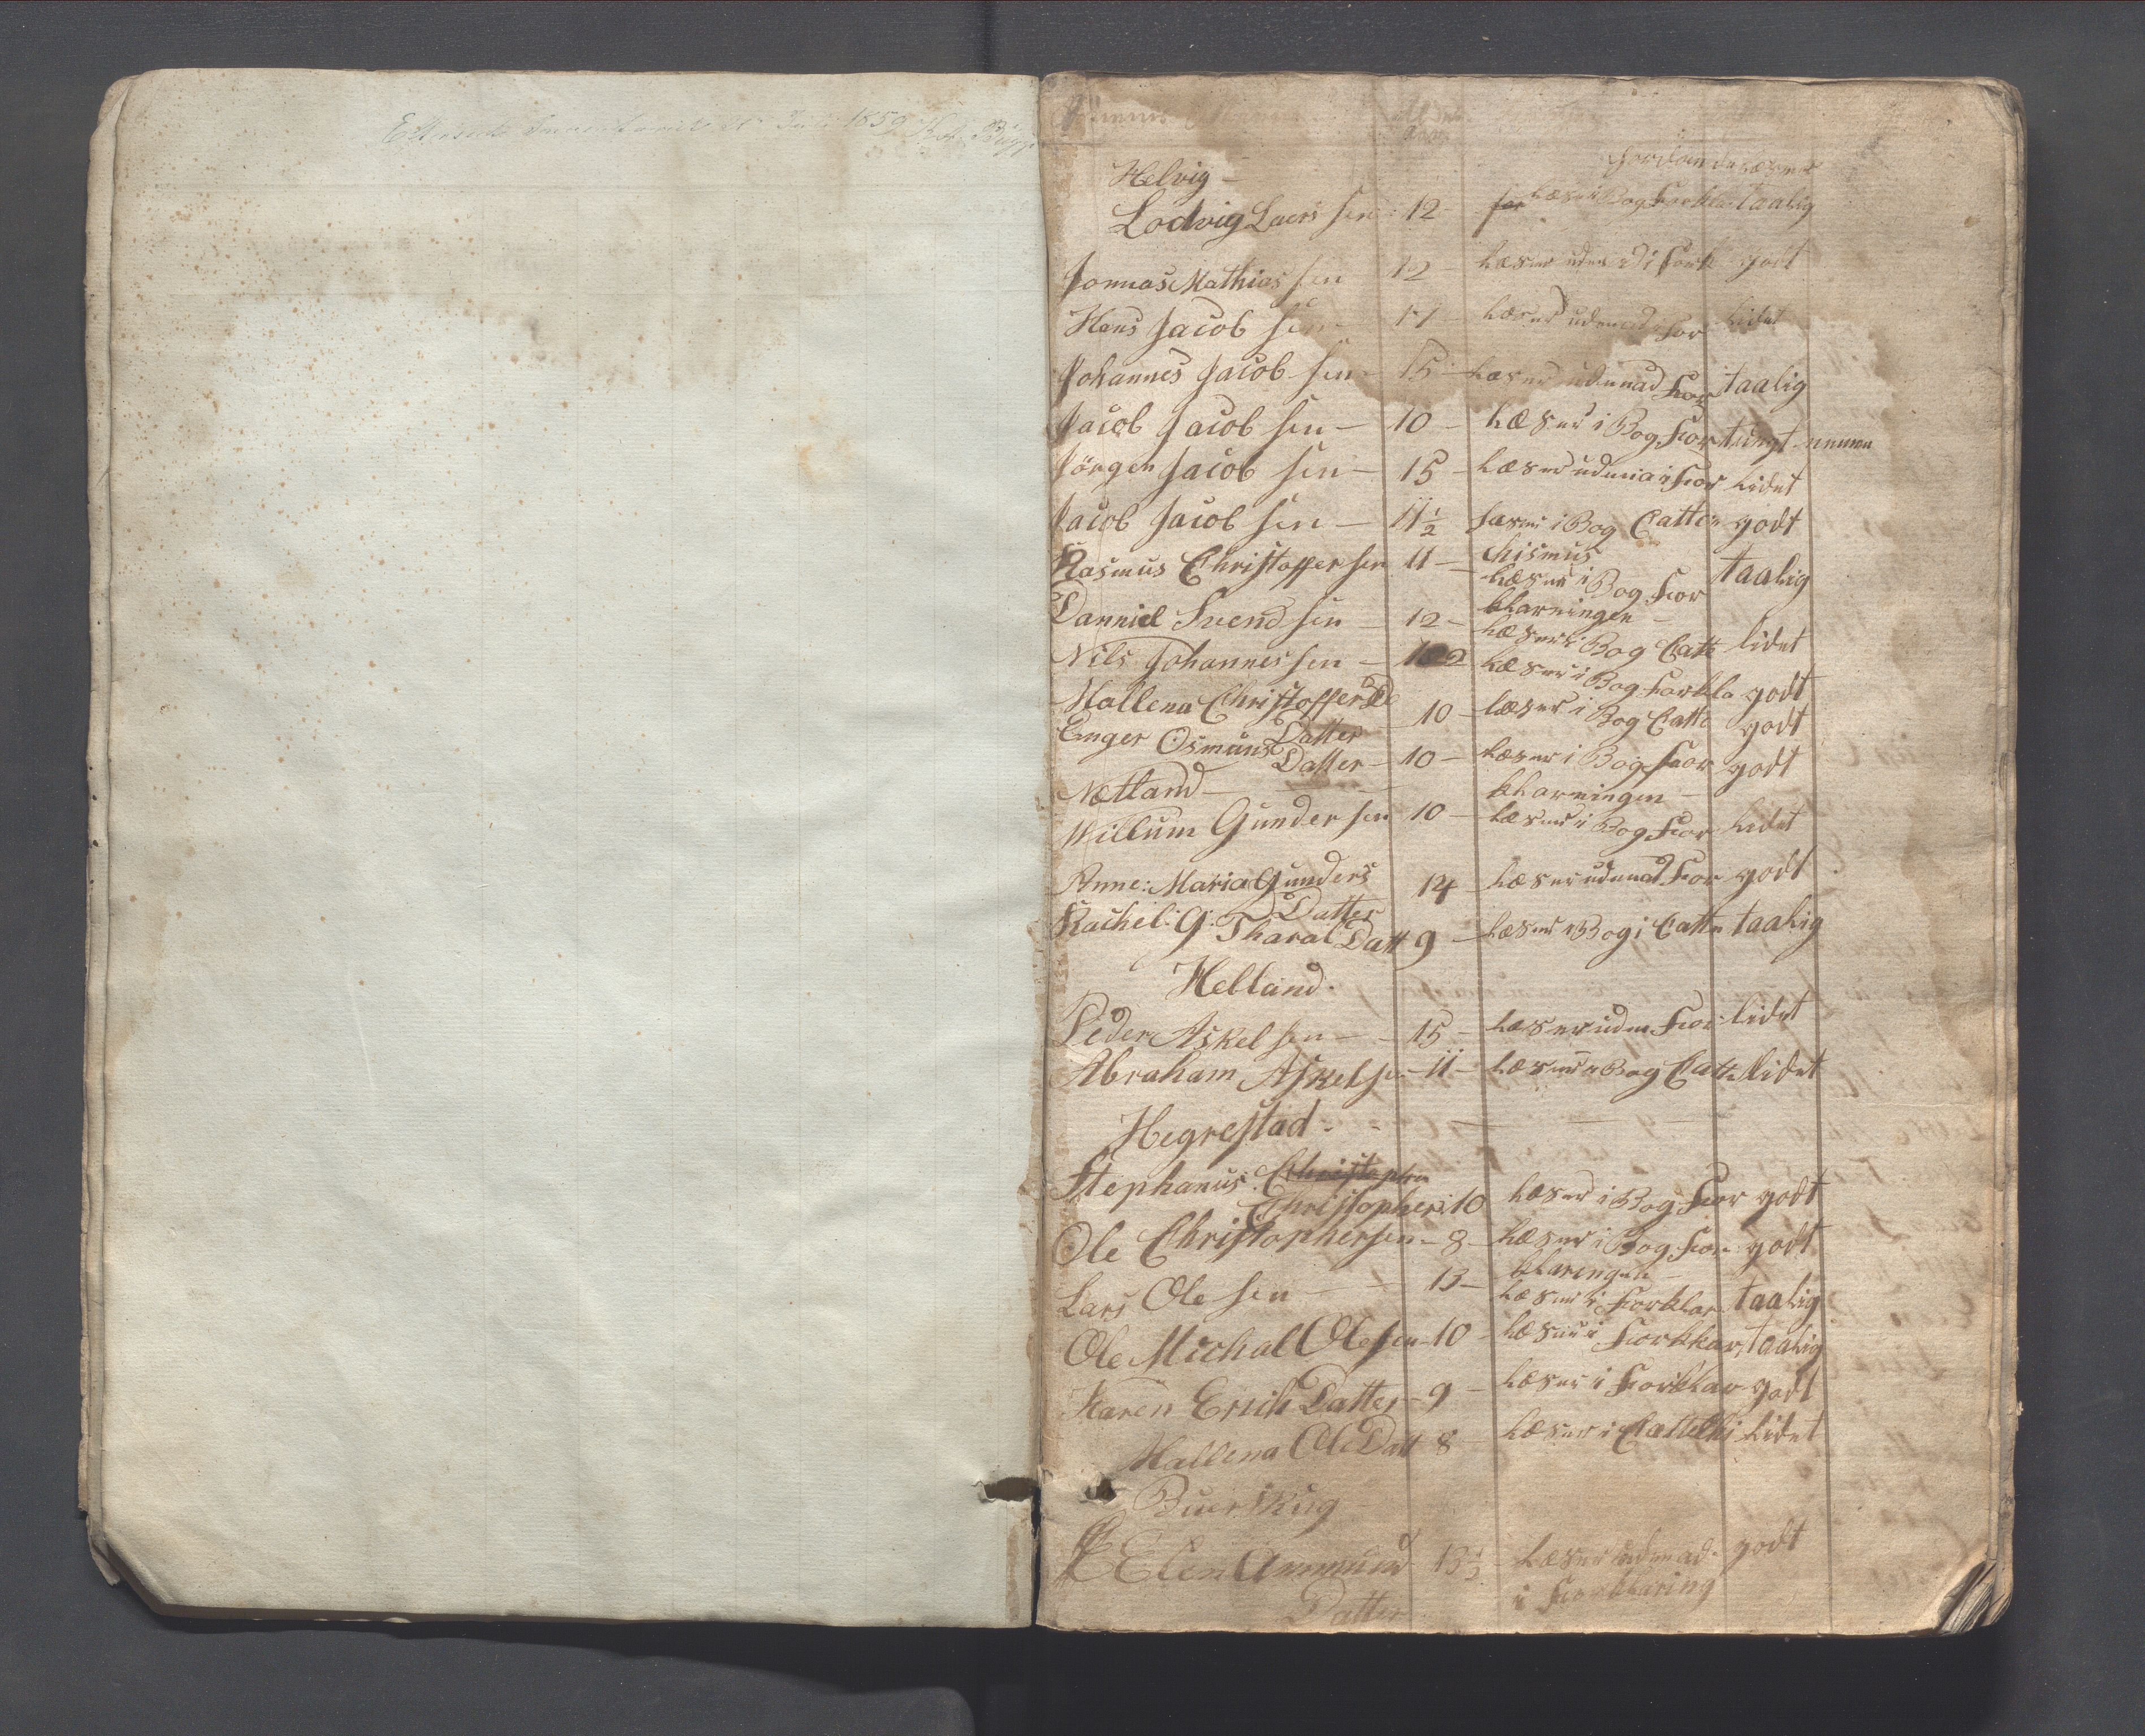 1859
Helvig -
Lodvig Laers sen - 12 - Læser i Bog Forkla taalig
Jonnas Mathias sen 12 - Læser uden ad i Fork godt
Hans Jacob sen - 17 - Læser udenad i For lidet
Johannes Jacob sen - 15 - Læser udenad For taalig
Jacob Jacob sen - 10 - Læser i Bog For tungt nemme
Jörgen Jacob sen - 15 - Læser udena i For lidet
Jacob Jacob sen - 11 1/2 Læser i Bog Catte godt
chismus
Rasmus Christoffer sen 11 - Læser i Bog For taalig
klarningen -
Danniel Svend sen - 12 - Læser i Bog Catt lidet
Nils Johannes sen - Læser i Bog Forkla godt
Mallena Christoffer
Datter - 10 - Læser i Bog Catte godt
Enger Osmuns Datter - 10 - Læser i Bog Foor godt
klarningen -
Nætland -
Willum Gunder sen 10 - Læser i Bog For lidet
Anne: Maria Gunders
Datter 14 - Læser udenad For godt
Rachel: G: Tharal Datt 9 - Læser i Bog i Catte taalig
Helland.
Peder Askel sen - 15 - Læser uden For lidet
Abraham Askelsen - 11 - Læser i Bog Catte lidet
Hegrestad - -
Stephanus: Christophers
Christophers: 10 Læser i Bog For godt
Ole Christophersen - 8 - Læser i Bog For godt
klaringen -
Lars Ole sen - 13 - Læser i Forklar taalig
Ole Michal Olesen - 10 - Læser i Forklar taalig
Karen Erich Datter - 9 - Læser i Forklar godt
Mallena Ole Datt 8 - Læser i Cattechi lidet
Buerskug
Elen Ammund 13 1/2 - Læser udenad godt
Datter i Forklaring